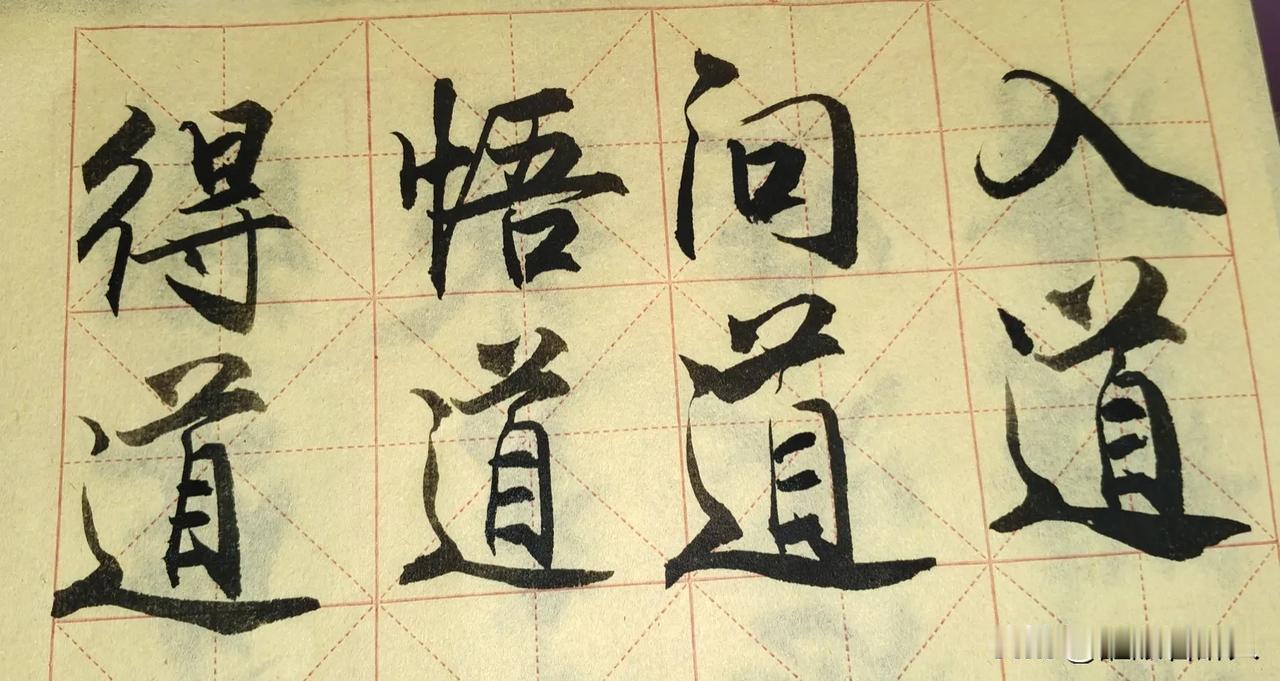 入道
问道
悟道
得道